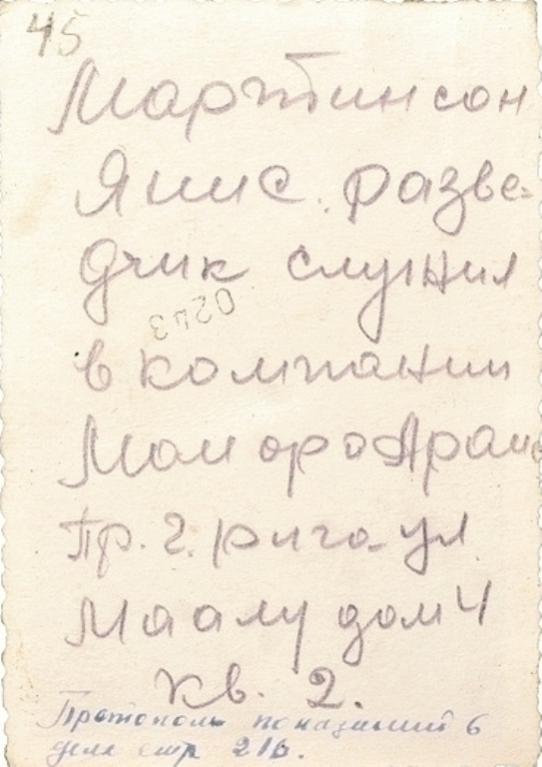 45
Мартинсон
Янис. разве-
дчик служил
0243
в компании
Майора Арай
Пр. г. рига ул.
Маалу дом 4
кв. 2.
Протоколы показаний в
деле стр 216.